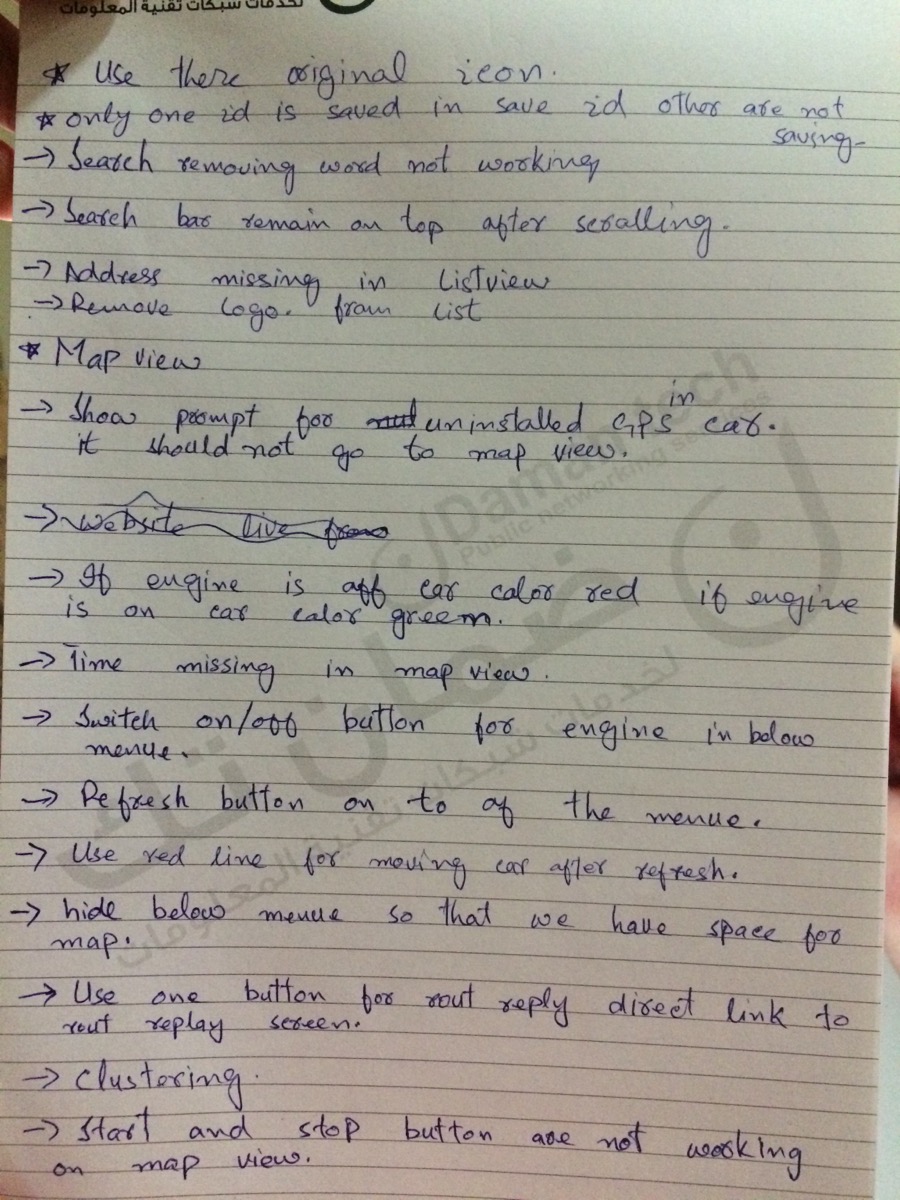 لخدمات شبكات تقنية المعلومات
* Use there original icon.
* only one id is saved in save id other are not
saving-
→ Search removing word not working
→ Search bar remain on top after scralling.
→ Address missing in Listview
→ Remove Logo. from List
* Map view
in
→ Show prompt for uninstalled GPS car.
it should not go to map view.
→ website live from
→ If engine is off car color red if engine
is on car color greem.
→ Time missing in map view.
→ Switch on/off button for engine in below
menue.
→ Refresh button on to of the menue.
→ Use red line for moving car after refresh.
→ hide below menue so that we have space for
map.
→ Use one button for rout reply direct link to
rout replay screen.
→ Clustering.
→ Start and stop button are not working
on map view.
Damantech
Public networking services
ضمان تك
لخدمات شبكات تقنية المعلومات